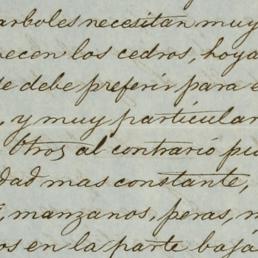 arboles necesitan muy
recen los cedros, hoya
se debe preferir para e
, y muy particular
Otros al contrario pu
dad mas constante,
, manzanos, peras, n
os en la parte baja